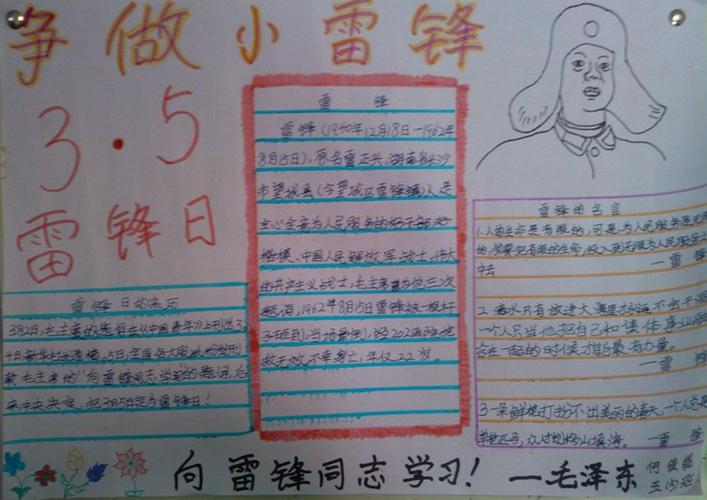 争做小雷锋
3·5
雷锋日
雷锋日的来历
3月2日,毛主席的题词在《中国青年》上刊出
4日新华社 5日,全国各大报
毛主席的"向雷锋同志学习"的题词,后
来中央决定,把3月5日定为雷锋日!
雷锋
雷锋(1940年12月18日—1962年
8月15日),原名雷正兴,湖南省长沙
市望城县(今望城区雷锋镇)人,是
全心全意为人民服务的
楷模,中国人民解放军战士,伟大
的共产主义战士,毛主席为他三次
题词,1962年8月15日雷锋被一根杆
子 当场晕倒,经202医院抢
救无效,不幸 亡,年仅22岁。
雷锋的名言
1.人的生命是有限的,可是,为人民服务是无限
的,我要把有限的生命,投入到无限为人民服务之
中去
—雷锋
2.滴水只有放进大海里
一个人只当他把自己和集体事业
合在一起的时候才能最有力量。
—雷锋
3.一朵鲜花打扮不出美丽的春天,一个人
众 移山填海。—雷锋
向雷锋同志学习!—毛泽东